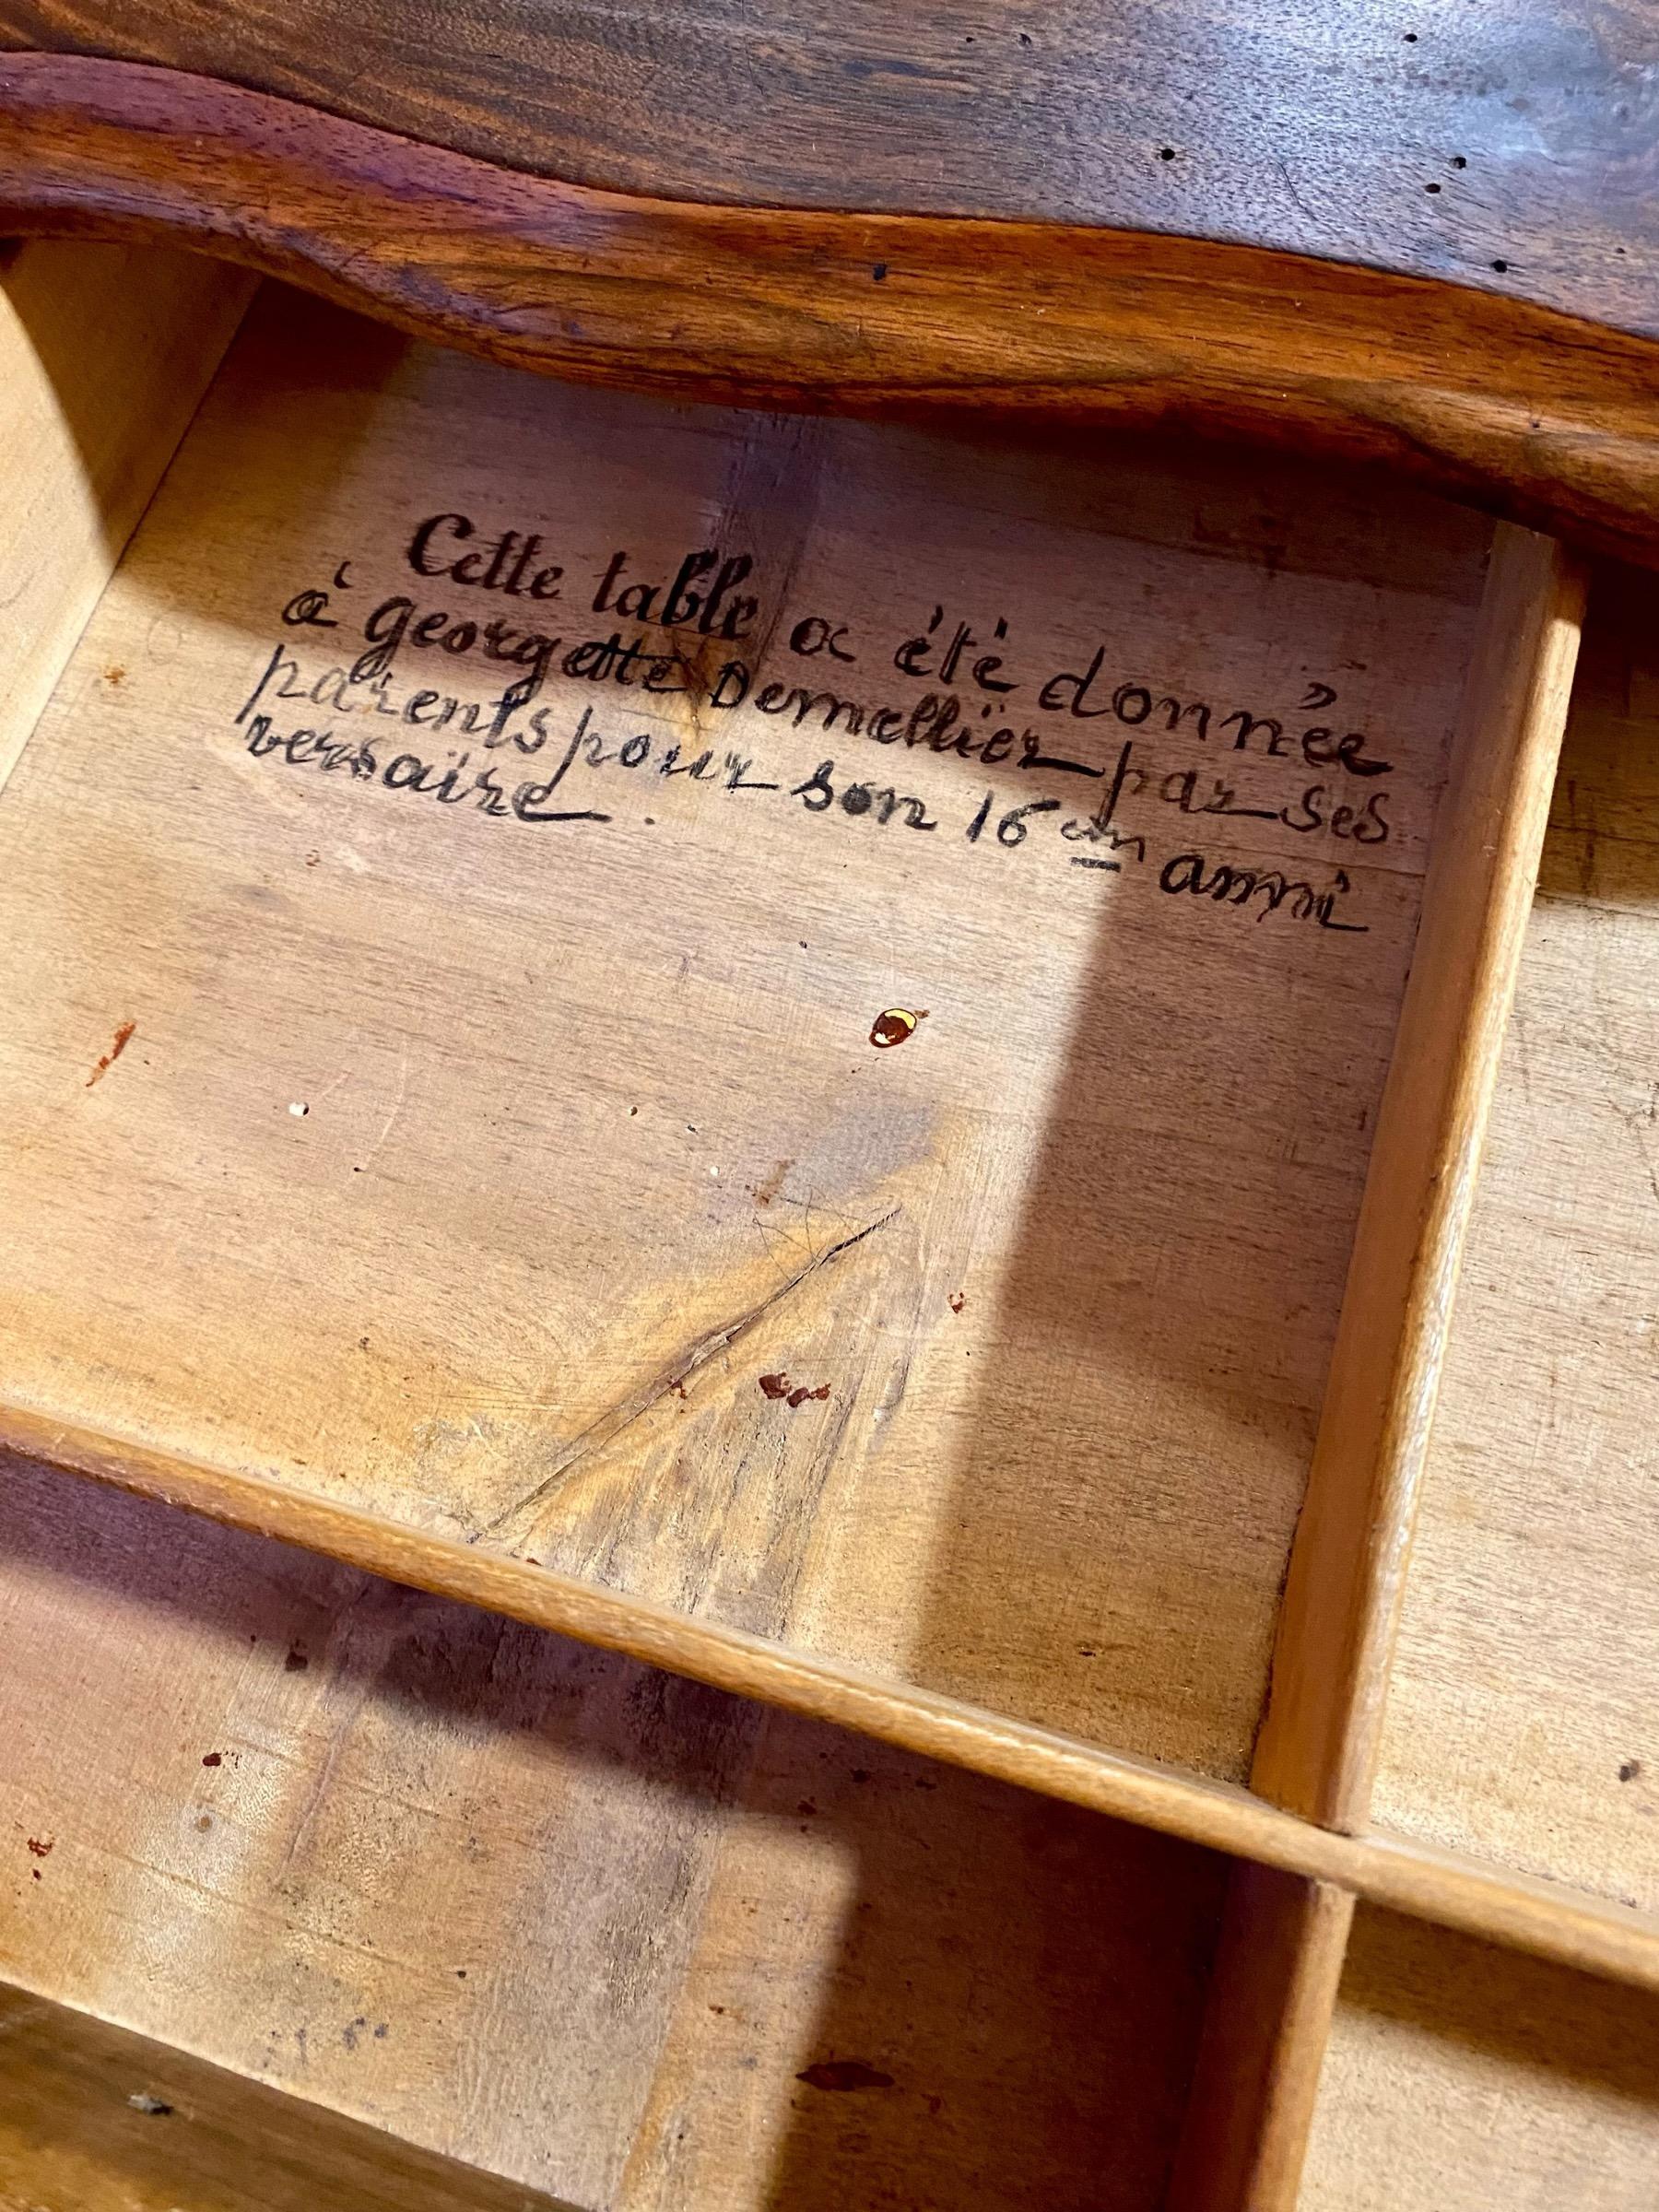 Cette table a été donnée
à georgette Demellier par ses
parents pour son 16 em anni
versaire.